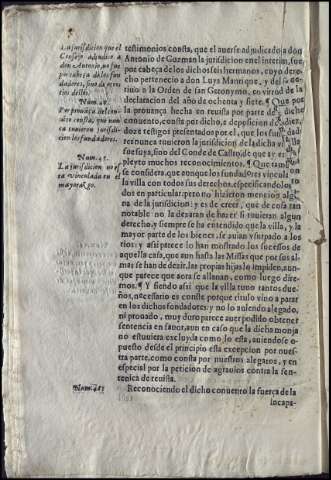 La jurisdicion que el
Consejo adjudico a
don Antonio, no fue
por cabeça de los fun
dadores, sino de cri
Num. 42.
Por prouança del con-
uento consta, que nun
ca tuuieron jurisdi-
cion los fundadores.
Num. 43.
La jurisdicion no es
ta vinculada en el
mayorazgo.
testimonios consta, que el auerse adjudicado a don
Antonio de Guzman la jurisdicion en el interim, fue
por cabeça de los dichos seis hermanos, cuyo derecho
pertenecio a don Luys Manrique, y del se
a la Orden de san Geronymo, en virtud de la
declaracion del año de ochenta y siete. ¶ Que por
la prouança hecha en reuista por parte del dicho
conuento, consta por dicho, y deposicion de
doze testigos presentados por el, que los funda
res nunca tuuieron la jurisdicion de la dicha villa
fue suya, sino del Conde de Castro, de que ay en el
pleyto muchos reconocimientos. ¶ Que tambien
se considera, que aunque los fundadores vincularon
la villa con todos sus derechos, especificandolos
en particular, pero no hizieron mencion
de la jurisdicion: y es de creer, que de cosa tan
notable no la dexaran de hazer si tuuieran algun
derecho, y siempre se ha entendido que la villa, y la
mayor parte de los bienes, fueron vsurpados a los
tios: y assi parece lo han mostrado los sucessos de
aquella casa, que aun hasta las Missas que por sus al
mas se han de dezir, las propias hijas lo impiden, aun-
que parece que aora se allanan, como luego dire-
mos. ¶ Y siendo assi que la villa tuuo tantos due-
ños, necessario es conste porque titulo vino a parar
en los dichos fundadores: y no lo auiendo alegado,
ni prouado, muy duro parece auer podido obtener
sentencia en fauor, aun en caso que la dicha monja
no estuuiera excluyda como lo està, auiendose o-
puesto desde el principio esta excepcion por nues-
tra parte, como consta por nuestros alegatos, y en
especial por la peticion de agrauios contra la sen-
tencia de reuista.
Num. 44.
Reconociendo el dicho conuento la fuerça de la
incapa-